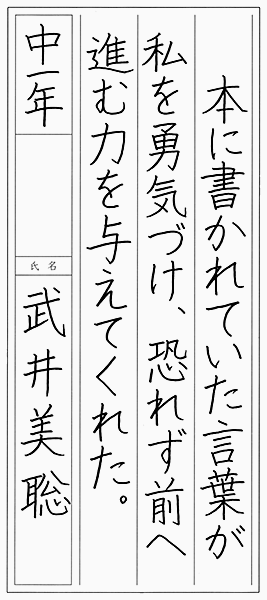 本に書かれていた言葉が
私を勇気づけ、恐れず前へ
進む力を与えてくれた。
中一年
氏名
武井美聡